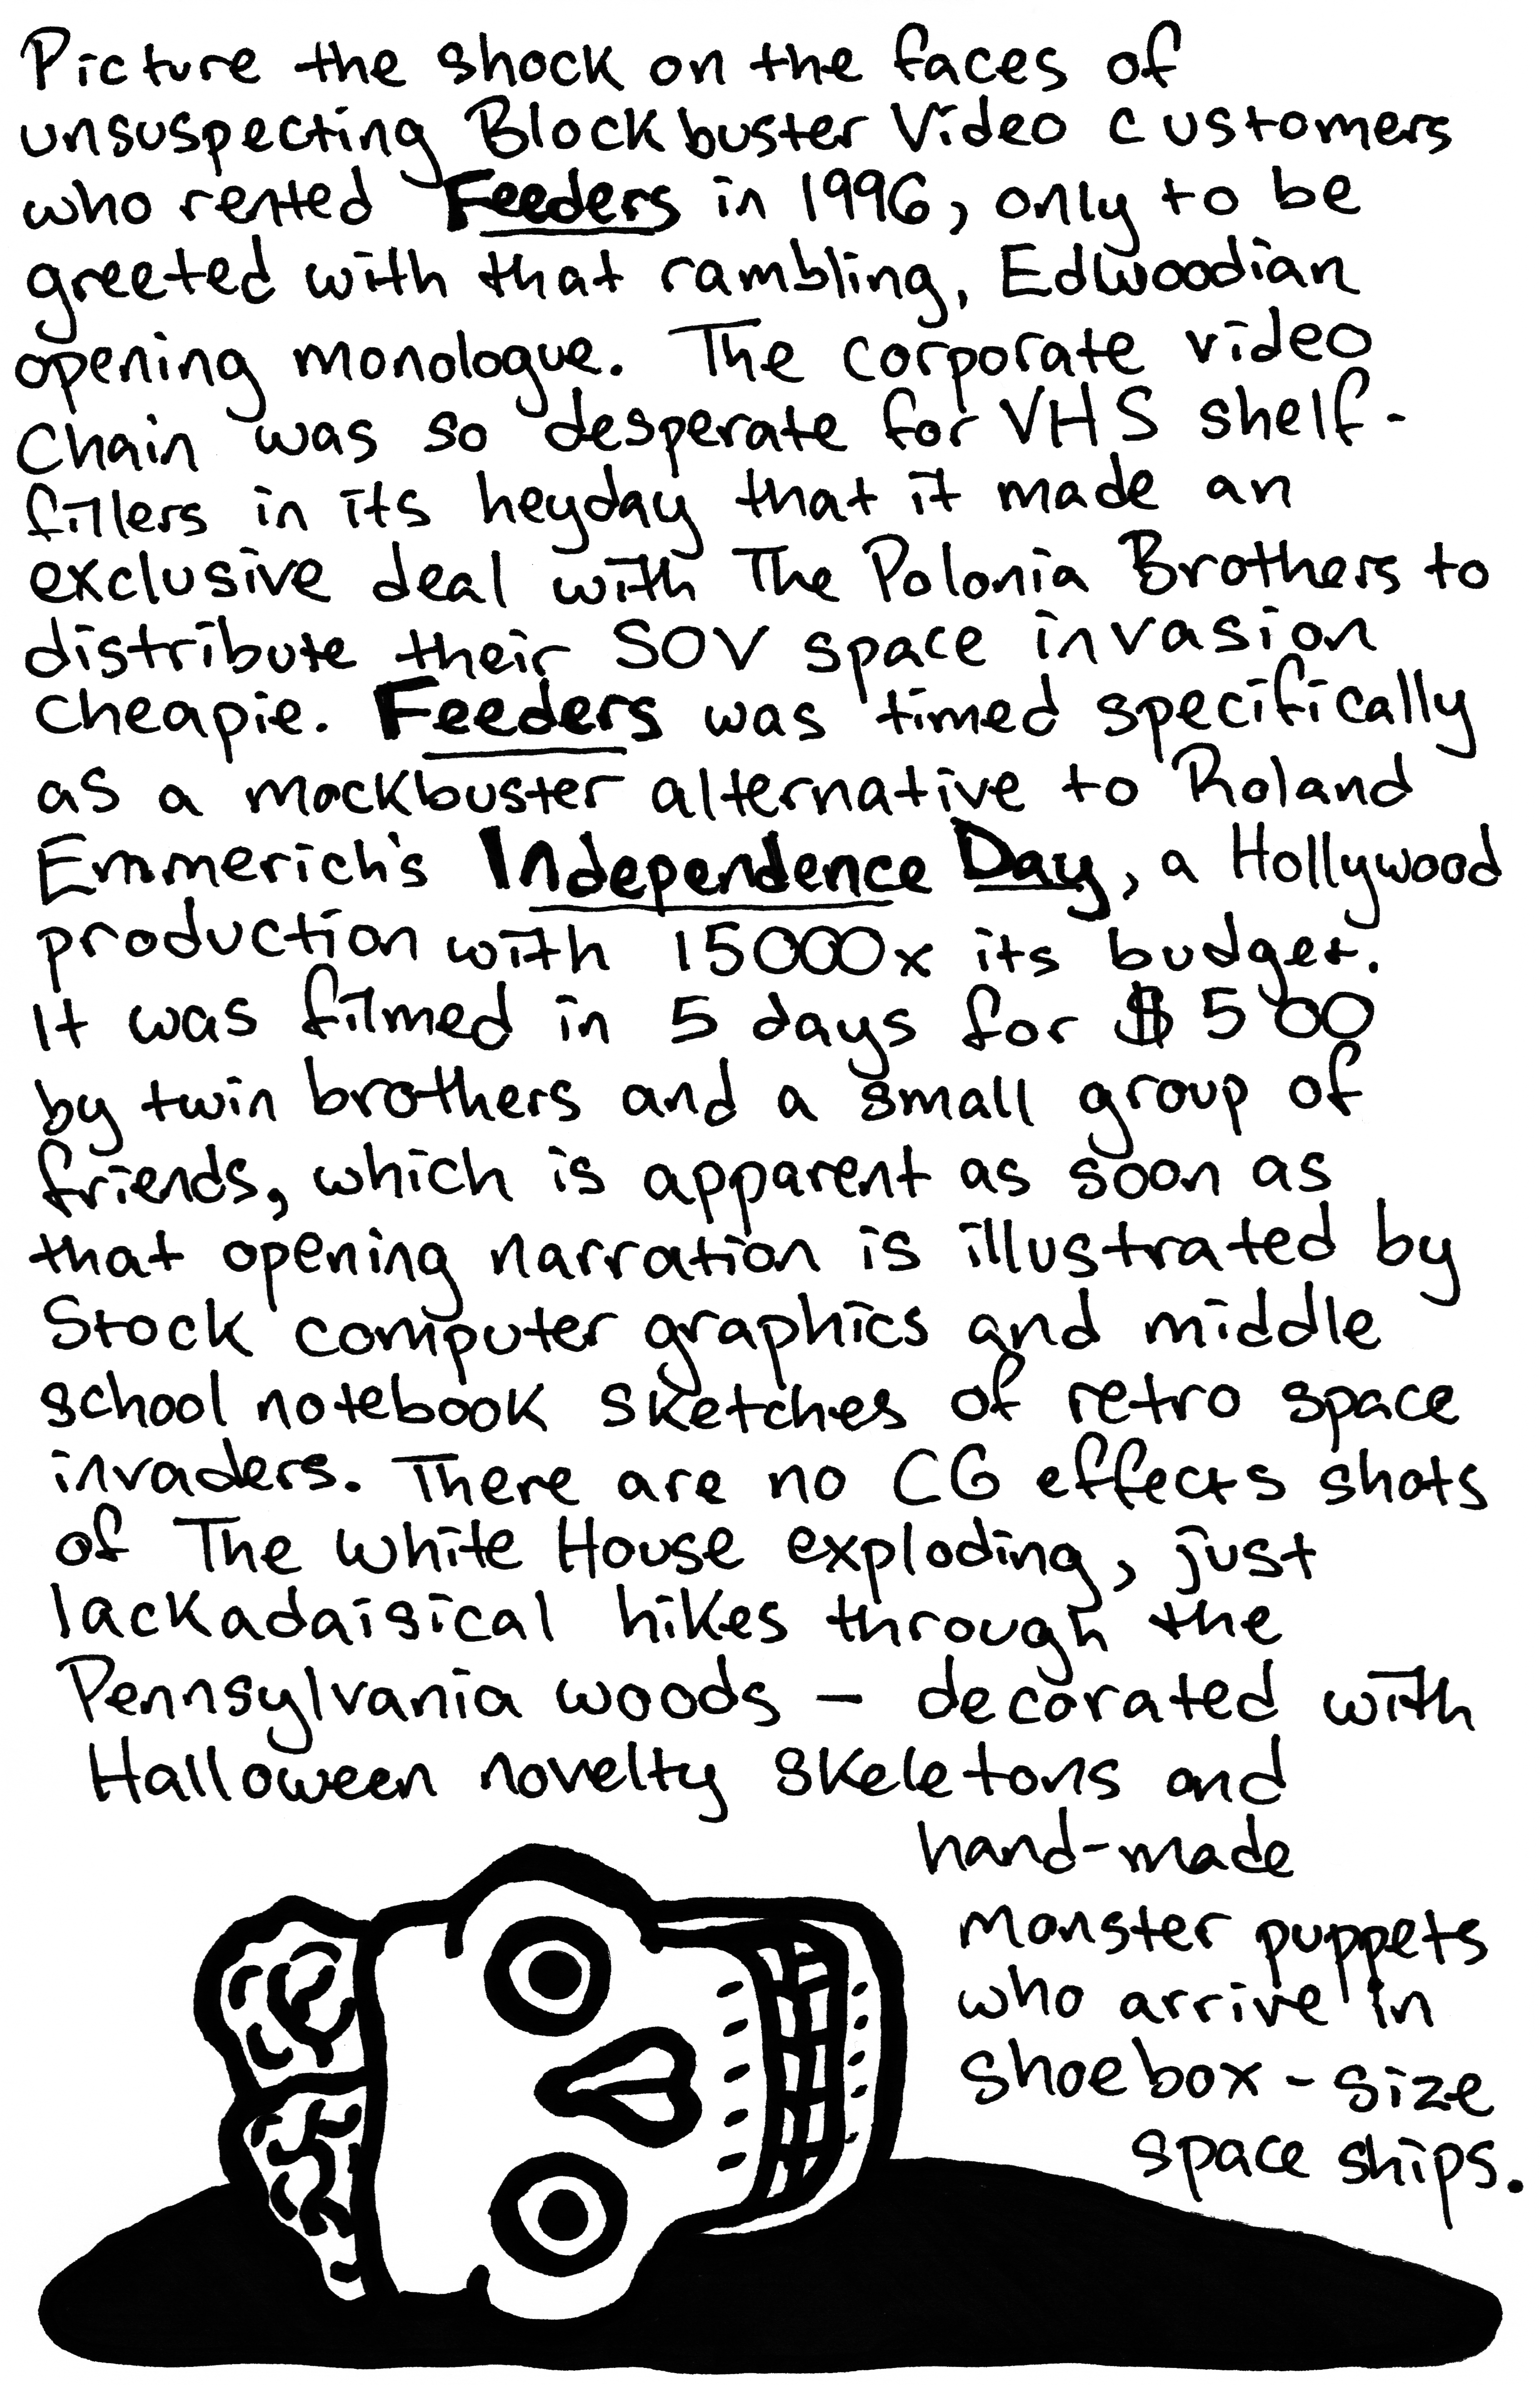 Picture the shock on the faces of
unsuspecting Blockbuster Video customers
who rented Feeders in 1996, only to be
greeted with that rambling, Edwoodian
opening monologue. The corporate video
chain was so desperate for VHS shelf-
fillers in its heyday that it made an
exclusive deal with The Polonia Brothers to
distribute their SOV space invasion
cheapie. Feeders was timed specifically
as a mockbuster alternative to Roland
Emmerich's Independence Day, a Hollywood
production with 15000x its budget.
It was filmed in 5 days for $500
by twin brothers and a small group of
friends, which is apparent as soon as
that opening narration is illustrated by
Stock computer graphics and middle
school notebook sketches of retro space
invaders. There are no CG effects shots
of The White House exploding, just
lackadaisical hikes through the
Pennsylvania woods – decorated with
Halloween novelty skeletons and
hand-made
monster puppets
who arrive in
shoebox-size
space ships.